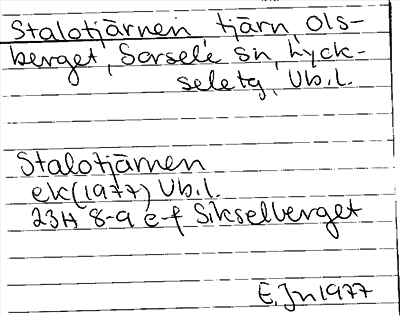 Stalotjärnen, tjärn, Ols-
berget, Sorsele sn, Lyck-
seletg, Vb.l.
Stalotjärnen
ek(1977) Vb.l.
23H 8-9 e-f Sikselberget
E.Jn 1977